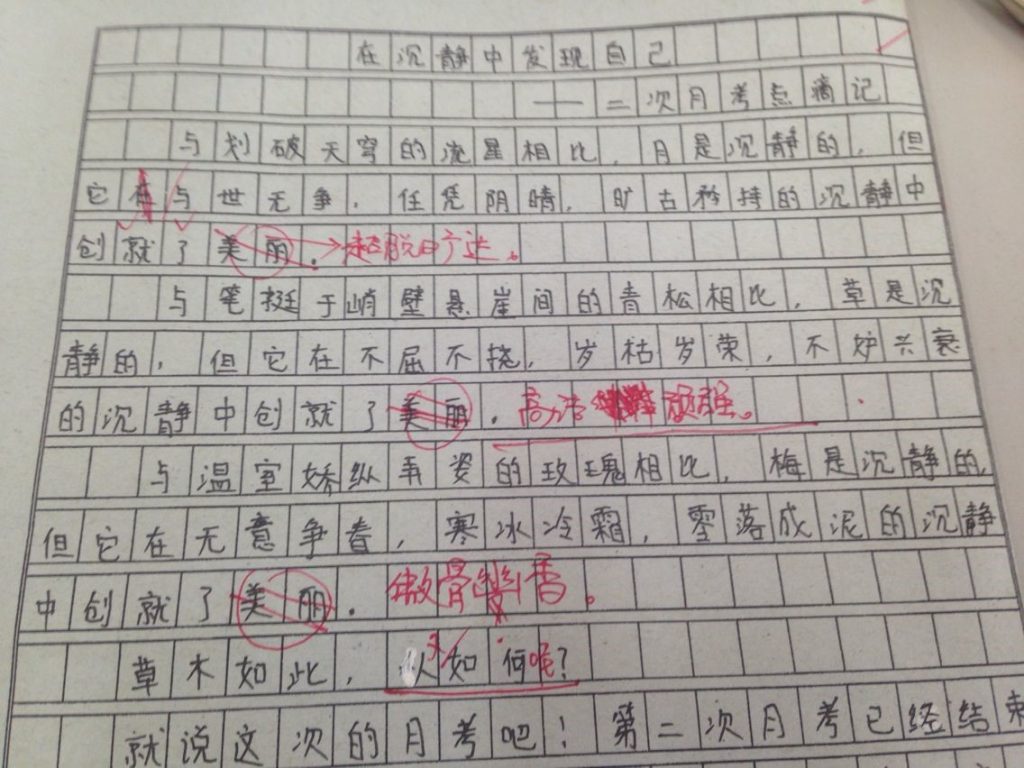 在沉静中发现自己
——二次月考点滴记
与划破天穹的流星相比，月是沉静的，但
它在与世无争，任凭阴晴，旷古矜持的沉静中
创就了美丽。超脱旷达。
与笔挺于峭壁悬崖间的青松相比，草是沉
静的，但它在不屈不挠，岁枯岁荣，不妒兴衰
的沉静中创就了美丽。高洁 顽强。
与温室娇纵弄姿的玫瑰相比，梅是沉静的，
但它在无意争春，寒冰冷霜，零落成泥的沉静
中创就了美丽。傲骨幽香。
草木如此，人又如何呢？
就说这次的月考吧！第二次月考已经结束